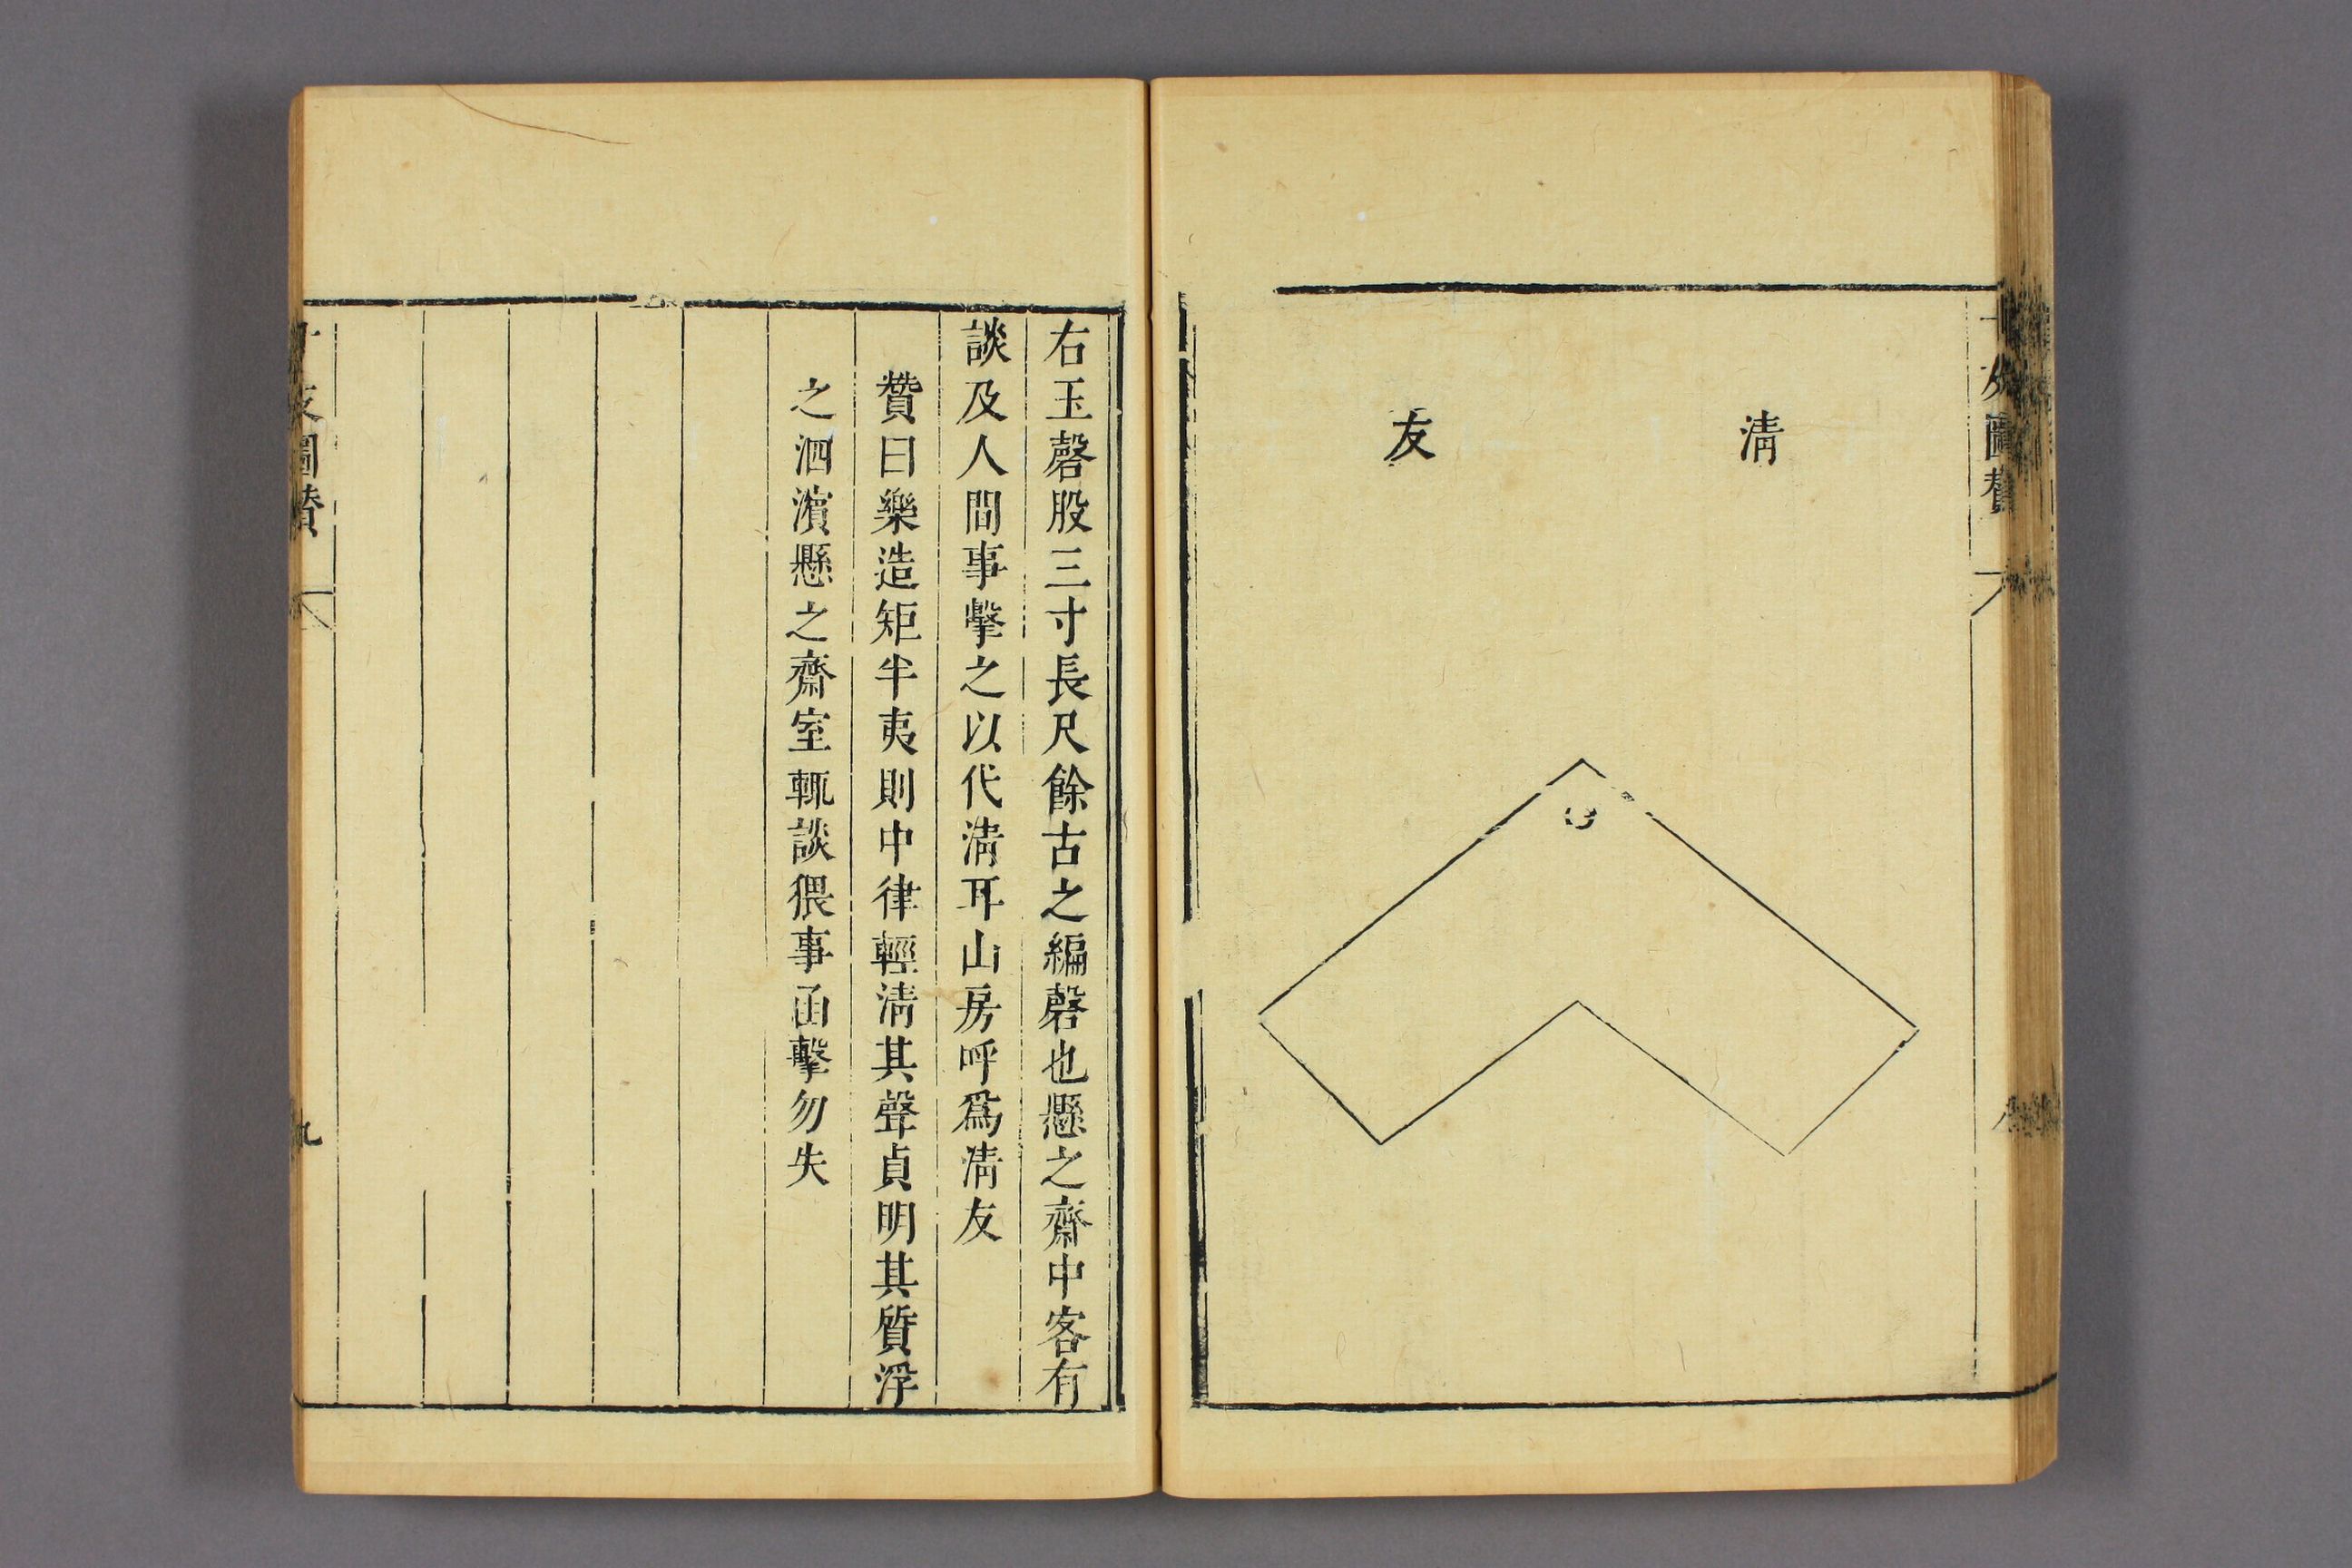 十友圖贊
清友
右玉磬股三寸長尺餘古之編磬也懸之齋中客有
談及人間事擊之以代清耳山房呼為清友
贊曰樂造矩半夷則中律輕清其聲貞明其質浮
之泗濱懸之齋室輒談猥事函擊勿失
友圖贊
九